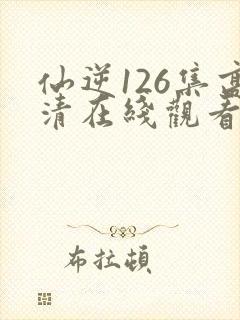 仙逆126集高
清在綫觀看
布拉頓